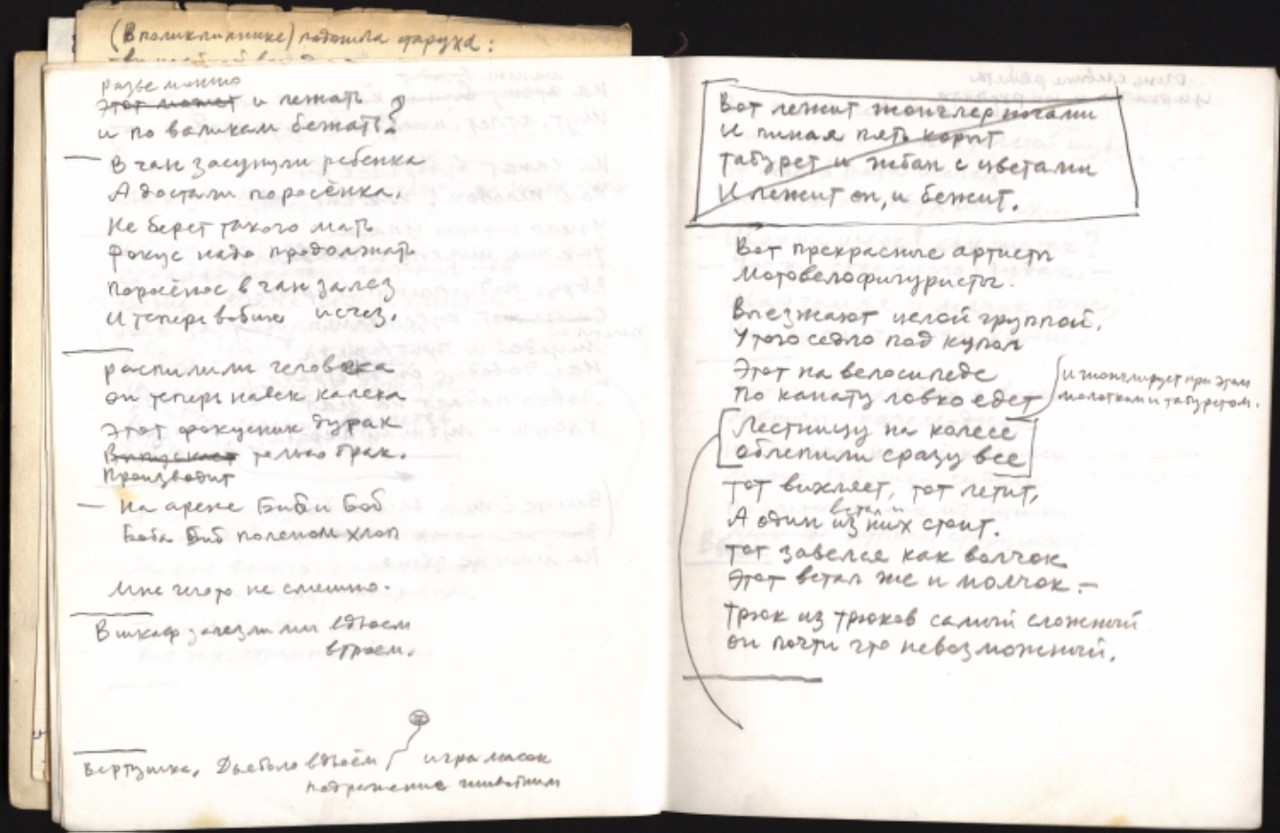 (В поликлинике) подошла старуха:
разве можно
Этот может и лежать
и по валикам бежать?
В чан засунули ребенка
А достали поросёнка.
Не берет такого мать
Фокус надо продолжать
Поросёнос в чан залез
И теперь вобще исчез.
распилили человека
он теперь навек калека
Этот фокусник дурак
Выпускает только брак.
Производит
На арене Биб и Боб
Боба Биб поленом хлоп
Мне чегото не смешно.
В шкаф залезли мы вдвоем
втроем.
Вертушка. вдвоём игра масок
подражение животным
Вот лежит жонглер ногами
И пиная пять корыт
Табурет и жбан с цветами
И лежит он, и бежит.
Вот прекрасные артисты
Мотовелофигуристы.
Въезжают целой группой,
У того седло под купол
Этот на велосипеде
По канату ловко едет
и жонглирует при этом
молотком и табуретом.
Лестницу на колесе
облепили сразу все
Тот вихляет, тот летит,
встал и
А один из них стоит.
Тот завелся как волчок
Этот встал же и молчок –
Трюк из трюков самый сложный
он почти что невозможный.